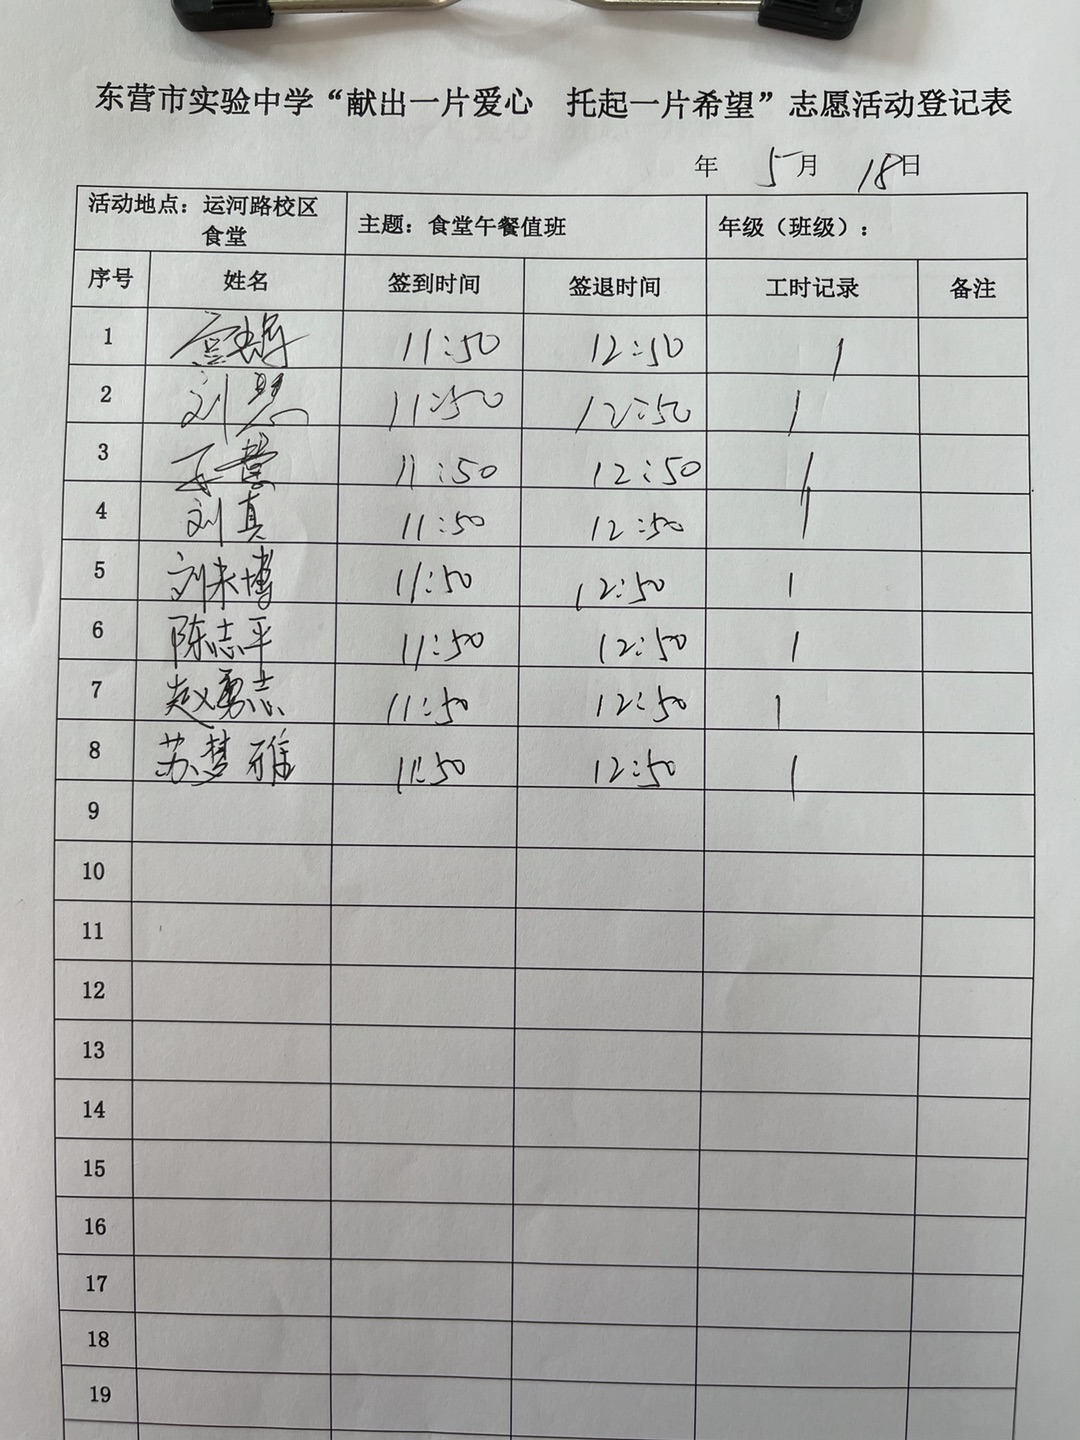 东营市实验中学“献出一片爱心 托起一片希望”志愿活动登记表
年 5月 18日
活动地点：运河路校区食堂 主题：食堂午餐值班 年级（班级）：
序号 姓名 签到时间 签退时间 工时记录 备注
1 11:50 12:50 1
2 刘 11:50 12:50 1
3 11:50 12:50 1
4 刘真 11:50 12:50 1
5 刘来博 11:50 12:50 1
6 陈志平 11:50 12:50 1
7 赵勇志 11:50 12:50 1
8 苏梦雅 11:50 12:50 1
9
10
11
12
13
14
15
16
17
18
19